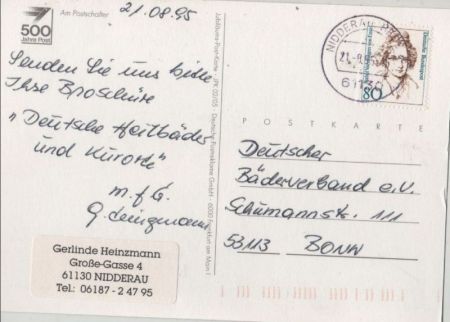 21.08.95
500
Jahre Post
Am Postschalter
Senden Sie uns bitte
Ihre Broschüre
"Deutsche Heilbäder
und Kurorte"
m.f.G.
G. Heinzmann
Gerlinde Heinzmann
Große-Gasse 4
61130 NIDDERAU
Tel.: 06187 - 2 47 95
Jubiläums-Post-Karte · JPK 00/05 · Deutsche Postreklame GmbH · 6000 Frankfurt am Main 1
NIDDERAU
21.-8.95
61130
Deutsche Bundespost
80
POSTKARTE
Deutscher
Bäderverband e.V.
Schumannstr. 111
53113 BONN